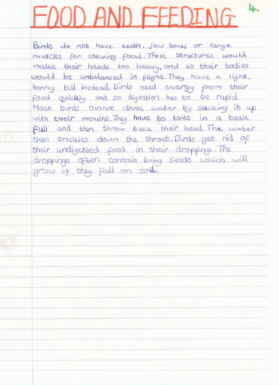 4.
FOOD AND FEEDING
Birds do not have teeth, jaw bones or large
muscles for chewing food. These structures would
make their heads too heavy, and so their bodies
would be unbalanced in flight. They have a light,
horny bill instead. Birds need energy from their
food quickly and so digestion has to be rapid.
Most birds cannot drink water by sucking it up
with their mouths. They have to take in a beak
full and then throw back their head. The water
then trickles down the throat. Birds get rid of
their undigested food in their droppings. The
droppings often contain seeds which will
grow if they fall on soil.